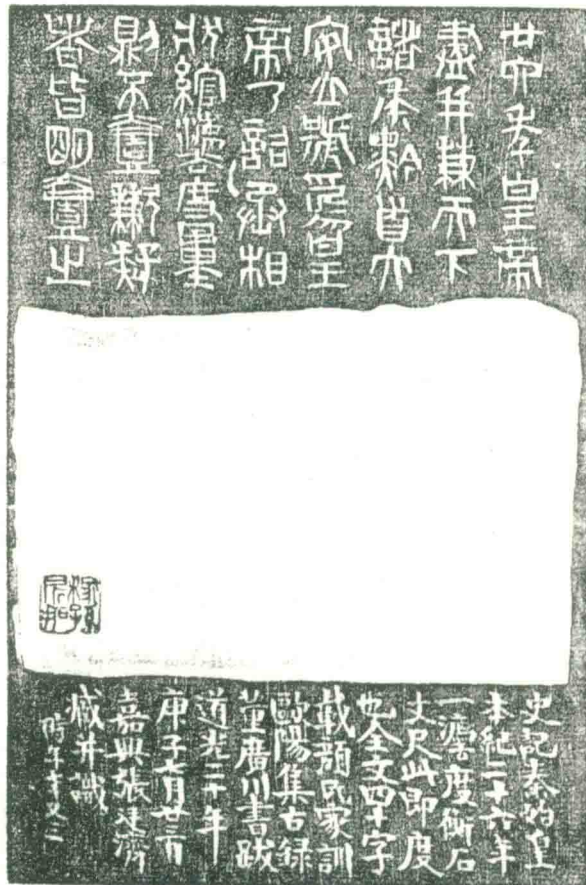 廿六年皇帝
盡并兼天下
諸矦黔首大
安立號爲皇
帝乃詔丞相
狀綰灋度量
則不壹歉疑
者皆明壹之
史記秦始皇
本紀二十六年
一灋度衡石
丈尺此即度
也全文四十字
載顏氏家訓
歐陽集古録
董廣川書跋
道光二十年
庚子七月廿三日
嘉興張廷濟
藏并識
時年七十又三